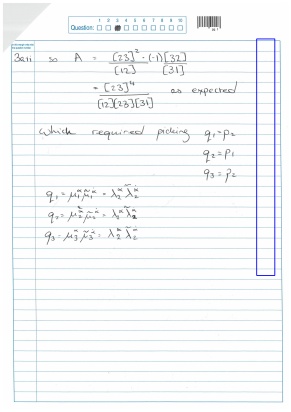 1 2 3 4 5 6 7 8 9 10
Question:
3aii so A = [23]² · (-1)[32] / [12] [31]
= [23]⁴ / [12][23][31] as expected
which required picking q₁ = p₂
q₂ = p₁
q₃ = p₂
q₁ = μ₁^α μ̃₁^α̇ = λ₂^α λ̃₂^α̇
q₂ = μ₂^α μ̃₂^α̇ = λ₂^α λ̃₂
q₃ = μ₃^α μ̃₃^α̇ = λ₂^α λ̃₂^α̇